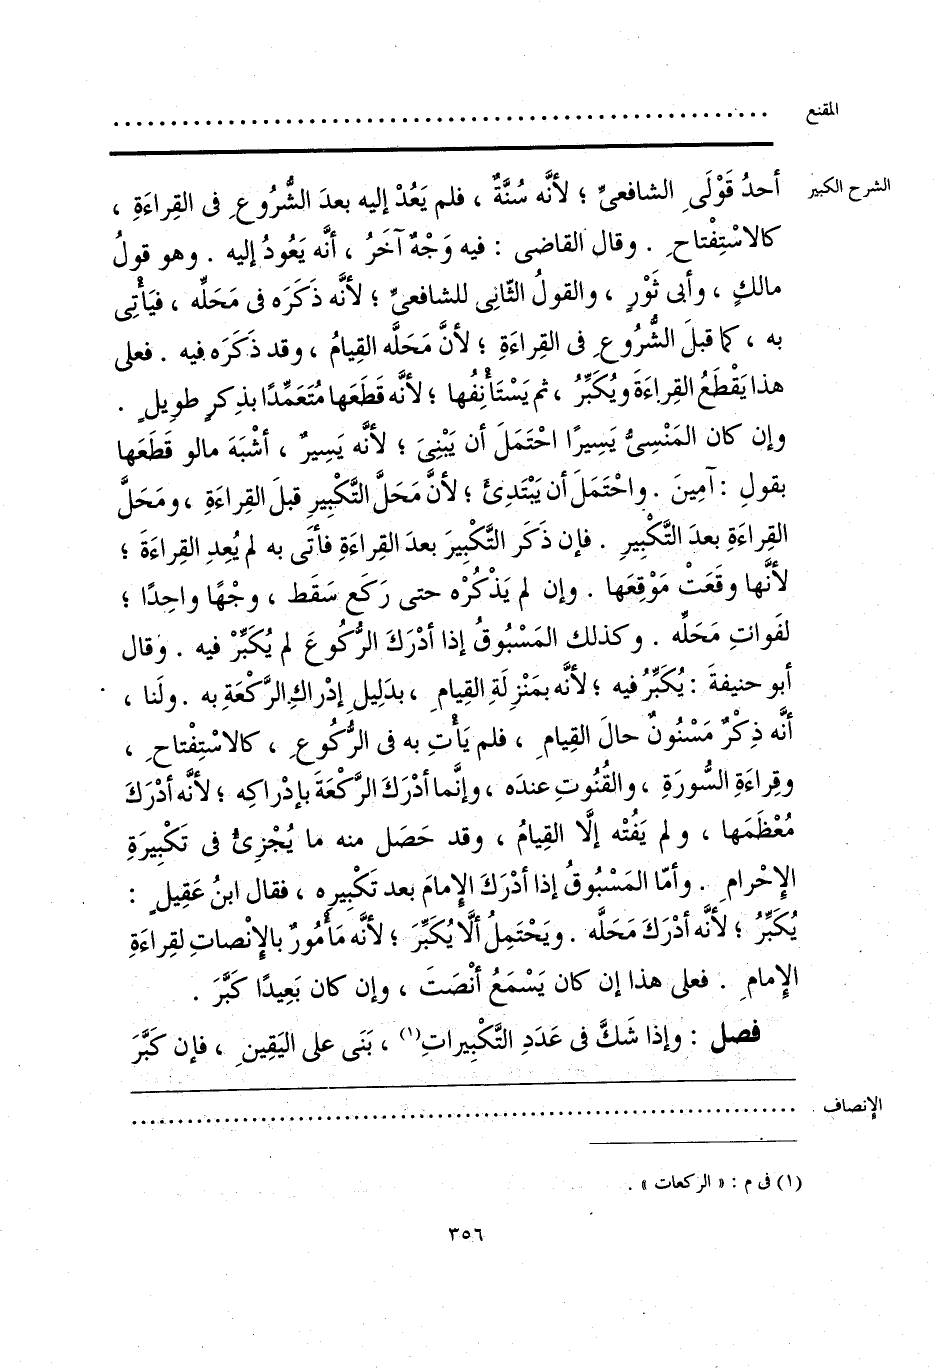 المقنع ..........................................................
الشرح الكبير أحدُ قَوْلَىِ الشافعىِّ ؛ لأنَّه سُنَّةٌ ، فلم يَعُدْ إليه بعدَ الشُّرُوعِ فى القِراءَةِ ،
كالاسْتِفْتاحِ . وقال القاضى : فيه وَجْهٌ آخَرُ ، أنَّه يَعُودُ إليه . وهو قولُ
مالكٍ ، وأبى ثَوْرٍ ، والقولُ الثّانِى للشافعىِّ ؛ لأنَّه ذَكَرَه فى مَحَلِّه ، فيَأْتِى
به ، كما قبلَ الشُّرُوعِ فى القِراءَةِ ؛ لأنَّ مَحَلَّه القِيامُ ، وقد ذَكَرَه فيه . فعلى
هذا يَقْطَعُ القِراءَةَ ويُكَبِّرُ ، ثم يَسْتَأْنِفُها ؛ لأنَّه قَطَعَها مُتَعَمِّدًا بذِكرٍ طويلٍ .
وإن كان المَنْسِىُّ يَسِيرًا احْتَمَلَ أن يَبْنِىَ ؛ لأنَّه يَسِيرٌ ، أشْبَهَ مالو قَطَعَها
بقولِ : آمِينَ . واحْتَمَلَ أن يَبْتَدِئَ ؛ لأنَّ مَحَلَّ التَّكْبِيرِ قبلَ القِراءَةِ ، ومَحَلَّ
القِراءَةِ بعدَ التَّكْبِيرِ . فإن ذَكَر التَّكْبِيرَ بعدَ القِراءَةِ فأتَى به لم يُعِدِ القِراءَةَ ؛
لأنَّها وقَعَتْ مَوْقِعَها . وإن لم يَذْكُرْه حتى رَكَع سَقَط ، وجْهًا واحِدًا ؛
لفَواتِ مَحَلِّه . وكذلك المَسْبُوقُ إذا أدْرَكَ الرُّكُوعَ لم يُكَبِّرْ فيه . وقال
أبو حنيفةَ : يُكَبِّرُ فيه ؛ لأنَّه بمَنْزِلَةِ القِيامِ ، بدَلِيلِ إدْراكِ الرَّكْعَةِ به . ولَنا ،
أنَّه ذِكْرٌ مَسْنُونٌ حالَ القِيامِ ، فلم يَأْتِ به فى الرُّكُوعِ ، كالاسْتِفْتاحِ ،
وقِراءَةِ السُّورَةِ ، والقُنُوتِ عندَه ، وإنَّما أدْرَكَ الرَّكْعَةَ بإدْراكِه ؛ لأنَّه أدْرَكَ
مُعْظَمَها ، ولم يَفُتْه إلَّا القِيامُ ، وقد حَصَل منه ما يُجْزِئُ فى تَكْبِيرَةِ
الإِحْرامِ . وأمّا المَسْبُوقُ إذا أدْرَكَ الإِمامَ بعد تَكْبِيرِه ، فقال ابنُ عَقِيلٍ :
يُكَبِّرُ ؛ لأنَّه أدْرَكَ مَحَلَّه . ويَحْتَمِلُ ألَّا يُكَبِّرَ ؛ لأنَّه مَأْمُورٌ بالإِنْصاتِ لقِراءَةِ
الإِمامِ . فعلى هذا إن كان يَسْمَعُ أنْصَتَ ، وإن كان بَعِيدًا كَبَّرَ .
فصل : وإذا شَكَّ فى عَدَدِ التَّكْبِيراتِ(١) ، بَنَى على اليَقِينِ ، فإن كَبَّرَ
الإنصاف ..........................................................
(١) فى م : « الركعات » .
٣٥٦